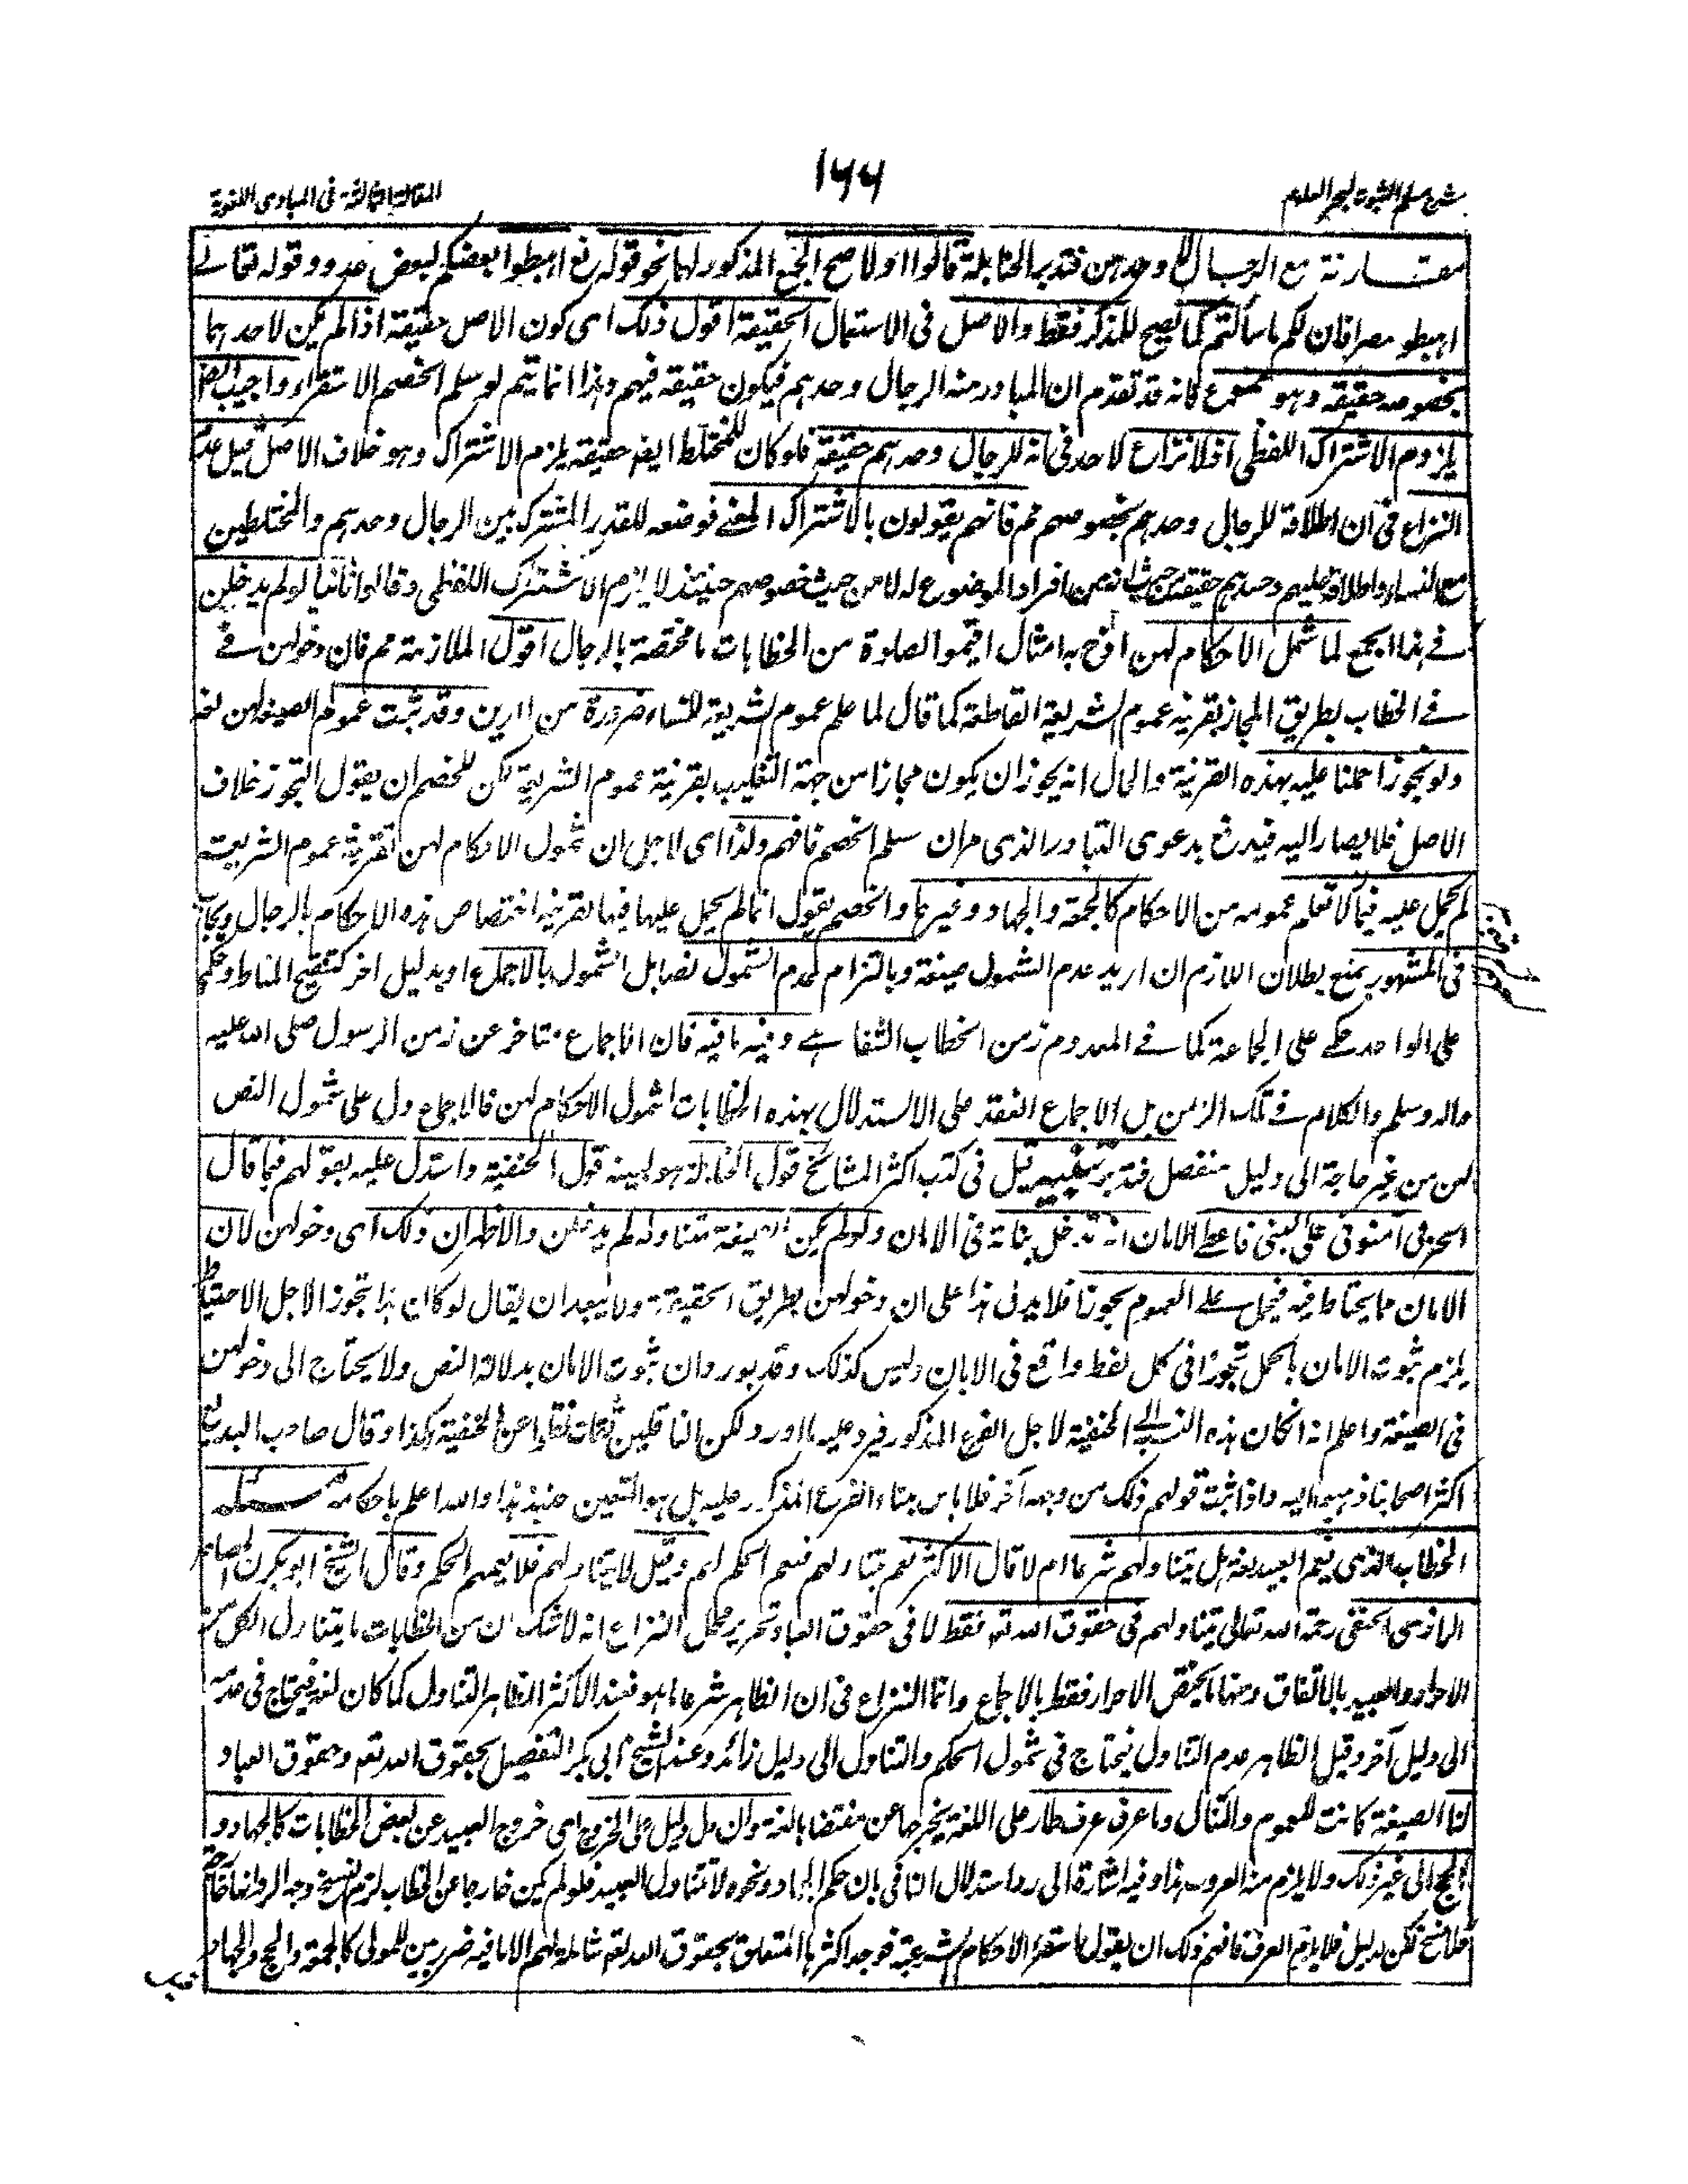 شرح مسلم الثبوت لبحر العلوم
١٦٦
المقالة الثالثة فى المبادى اللغوية
مقارنة مع الرجال لا وحدهن فتدبر الحنابلة قالوا اولا صح الجمع المذكور لهما نحو قوله تع اهبطوا بعضكم لبعض عدو وقوله تعالے
اهبطو مصرا فان لكم ما سألتم كما يصح للمذكر فقط والاصل فى الاستعمال الحقيقة اقول ذلك اى كون الاصل حقيقة اذا لم يكن لاحدهما
بخصوصه حقيقة وهو ممنوع كانه قد تقدم ان المبادر منه الرجال وحدهم فيكون حقيقة فيهم وهذا انما يتم لو سلم الخصم الاستقراء واجيب ايضا
يلزوم الاشتراك اللفظى اذ لا نزاع لاحد فى انه للرجال وحدهم حقيقة فلو كان للمختلط ايضا حقيقة يلزم الاشتراك وهو خلاف الاصل قيل عدم
النزاع فى ان اطلاقه للرجال وحدهم بخصوصهم مم فانهم يقولون بالاشتراك المعنے فوضعه للقدر المشترك بين الرجال وحدهم والمختلطين
مع النساء واطلاقه عليهم وحدهم حقيقة من حيث انه من افراد الموضوع له لا من حيث خصوصهم حينئذ لا يلزم الاشتراك اللفظى وقالوا ثانيا لو لم يدخلن
فے هذا الجمع لما شمل الاحكام لهن اذح به امثال اقيموا الصلوة من الخطابات ما مختصة بالرجال اقول الملازمة مم فان دخولهن فے
فے الخطاب بطريق المجاز بقرينة عموم الشريعة القاطعة كما قال لما علم عموم الشريعة للنساء ضرورة من الدين وقد ثبت عموم الصيغة لهن لغة
ولو تجوزا حملنا عليه بهذه القرينة والحال انه يجوز ان يكون مجازا من جهة التغليب بقرينة عموم الشريعة لكن للخصم ان يقول التجوز خلاف
الاصل فلا يصار اليه فيدفع بدعوى التبادر الذى مر ان سلم الخصم فافهم ولذا اى لاجل ان شمول الاحكام لهن بقرينة عموم الشريعة
لم يحمل عليه فيما لا تعلم عمومه من الاحكام كالجمعة والجهاد وغيرها والخصم يقول انما لم يحمل عليها فيها بقرينة اختصاص هذه الاحكام بالرجال ويجاب
فى المشهور بمنع بطلان اللازم ان اريد عدم الشمول صيغة وبالتزام عدم الشمول نصا بل الشمول بالاجماع او بدليل اخر كتنقيح المناط وحكمى
على الواحد حكمے على الجماعة كما فے المعدوم زمن الخطاب الشفاهے وفيه ما فيه فان الاجماع متاخر عن زمن الرسول صلى الله عليه
واله وسلم والكلام فے تلك الزمن بل الاجماع انعقد على الاستدلال بهذه الخطابات لشمول الاحكام لهن فالاجماع دل على شمول النص
لهن من غير حاجة الى دليل منفصل فتدبر تنبيه قيل فى كتب اكثر المشائخ قول الحنابلة هو بعينه قول الحنفية واستدل عليه بقولهم فيما قال
الحربى آمنونى على بنى فاعطى الامان انه تدخل بناته فى الامان ولو لم يكن الصيغة متناولة لم يدخلن والاظهر ان ذلك اى دخولهن لان
الامان مما يحتاط فيه فيحمل على العموم تجوزا فلا يدل هذا على ان دخولهن بطريق الحقيقة ولا يبعد ان يقال لو كان هذا تجوزا لاجل الاحتياط
يلزم ثبوت الامان بالحمل تجوزا فى كل لفظ واقع فى الامان وليس كذلك وقد يورد ان ثبوت الامان بدلالة النص ولا يحتاج الى دخولهن
فى الصيغة واعلم انه انكان هذه النسبة الى الحنفية لاجل الفرع المذكور فيرد عليه ما اورد ولكن الناقلين ثقات نقلوا عن الحنفية هكذا وقال صاحب البديع
اكثر اصحابنا ذهبوا اليه واذا ثبت قولهم ذلك من وجه آخر فلا باس ببناء الفرع المذكور عليه بل هو المتعين حينئذ هذا والله اعلم باحكامه مسئلة
الخطاب الذى يعم العبيد لغة هل يتناولهم شرعا ام لا قال الاكثر نعم يتناولهم فيعم الحكم لهم وقيل لا يتناولهم فلا يعمهم الحكم وقال الشيخ ابو بكر
الرازى الحنفى رحمة الله تعالى يتناولهم فى حقوق الله تع فقط لا فى حقوق العباد تحرير محل النزاع انه لا شك ان من الخطابات ما يتناول الكل من
الاحرار والعبيد بالاتفاق ومنها ما يختص الاحرار فقط بالاجماع وانما النزاع فى ان الظاهر شرعا ما هو فعند الاكثر الظاهر التناول كما كان لغة فيحتاج فى عدمه
الى دليل آخر وقيل الظاهر عدم التناول فيحتاج فى شمول الحكم والتناول الى دليل زائد وعند الشيخ ابى بكر التفصيل بحقوق الله تع وحقوق العباد
لنا الصيغة كانت للعموم والتناول وما عرف عرف طار على اللغة يخرجها عن مقتضاها لغة وان دل دليل على الخروج اى خروج العبيد عن بعض الخطابات كالجهاد و
الحج الى غير ذلك ولا يلزم منه العرف هذا وفيه اشارة الى رد استدلال النافى بان حكم الجهاد ونحوه لا تتناول العبيد فلو لم يكن خارجا عن الخطاب لزم النسخ وجه الرد انها خاصة
فلا نسخ لكن بدليل فلا يلزم العرف فافهم ولك ان يقول استقراء الاحكام الشرعية فوجد اكثرها المتعلق بحقوق الله تعالى شاملة لهم الا ما فيه ضرر بين للمولى كالجمعة والحج والجهاد